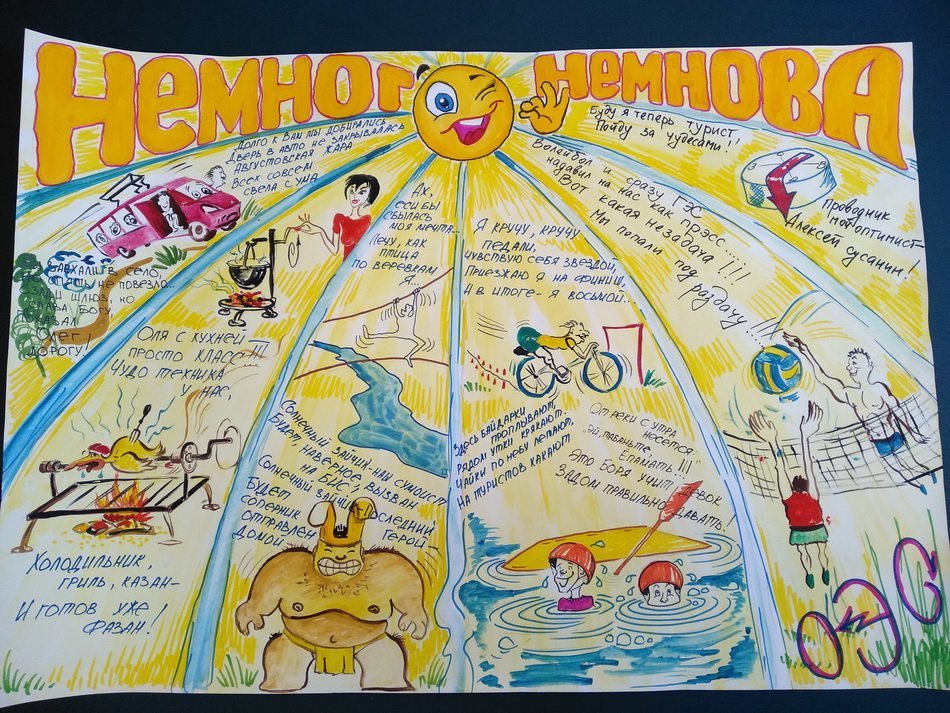 НЕМНОГ НЕМНОВА
ДОЛГО К ВАМ МЫ ДОБИРАЛИСЬ
ДВЕРЬ В АВТО НЕ ЗАКРЫВАЛАСЬ
АВГУСТОВСКАЯ ЖАРА
ВСЕХ СОВСЕМ
СВЕЛА С УМА
В СЕЛО,
НЕ ПОВЕЗЛО...
ШЛЮЗ, НО
БОГУ,
ДОРОГУ!
ОЛЯ С КУХНЕЙ -
ПРОСТО КЛАСС!!!
ЧУДО ТЕХНИКА
У НАС,
ХОЛОДИЛЬНИК,
ГРИЛЬ, КАЗАН-
И ГОТОВ УЖЕ
ФАЗАН!
АХ,
ЕСЛИ БЫ
СБЫЛАСЬ
МОЯ МЕЧТА...
ЛЕЧУ, КАК
ПТИЦА
ПО ВЕРЕВКАМ
Я...
СОЛНЕЧНЫЙ ЗАЙЧИК-НАШ СУМОИСТ
БУДЕТ, НАВЕРНО, ВЫЗВАН
НА БИС
СОЛНЕЧНЫЙ ЗАЙЧИК ПОСЛЕДНИЙ
ГЕРОЙ -
БУДЕТ
СОПЕРНИК
ОТПРАВЛЕН
ДОМОЙ
Я КРУЧУ, КРУЧУ
ПЕДАЛИ,
ЧУВСТВУЮ СЕБЯ ЗВЕЗДОЙ,
ПРИЕЗЖАЮ Я НА ФИНИШ,
А В ИТОГЕ - Я ВОСЬМОЙ...
ЗДЕСЬ БАЙДАРКИ
ПРОПЛЫВАЮТ,
РЯДОМ УТКИ КРЯКАЮТ.
ЧАЙКИ ПО НЕБУ ЛЕТАЮТ,
НА ТУРИСТОВ КАКАЮТ
ОТ РЕКИ С УТРА
НЕСЕТСЯ
"ЭЙ, ТАБАНЬТЕ,
ЕПАМАТЬ!!!"
ЭТО БОРЯ УЧИТ ДЕВОК
ЗАДОМ ПРАВИЛЬНО ДАВАТЬ!
ВОЛЕЙБОЛ И СРАЗУ ГЭС
НАДАВИЛ НА НАС КАК ПРЭСС.....
ВОТ КАКАЯ НЕЗАДАЧА!!!!
МЫ ПОПАЛИ ПОД РАЗДАЧУ!!
БУДУ Я ТЕПЕРЬ ТУРИСТ
ПОЙДУ ЗА ЧУДЕСАМИ!!
ПРОВОДНИК
МОЙ-ОПТИМИСТ
АЛЕКСЕЙ СУСАНИН!
ОЭС